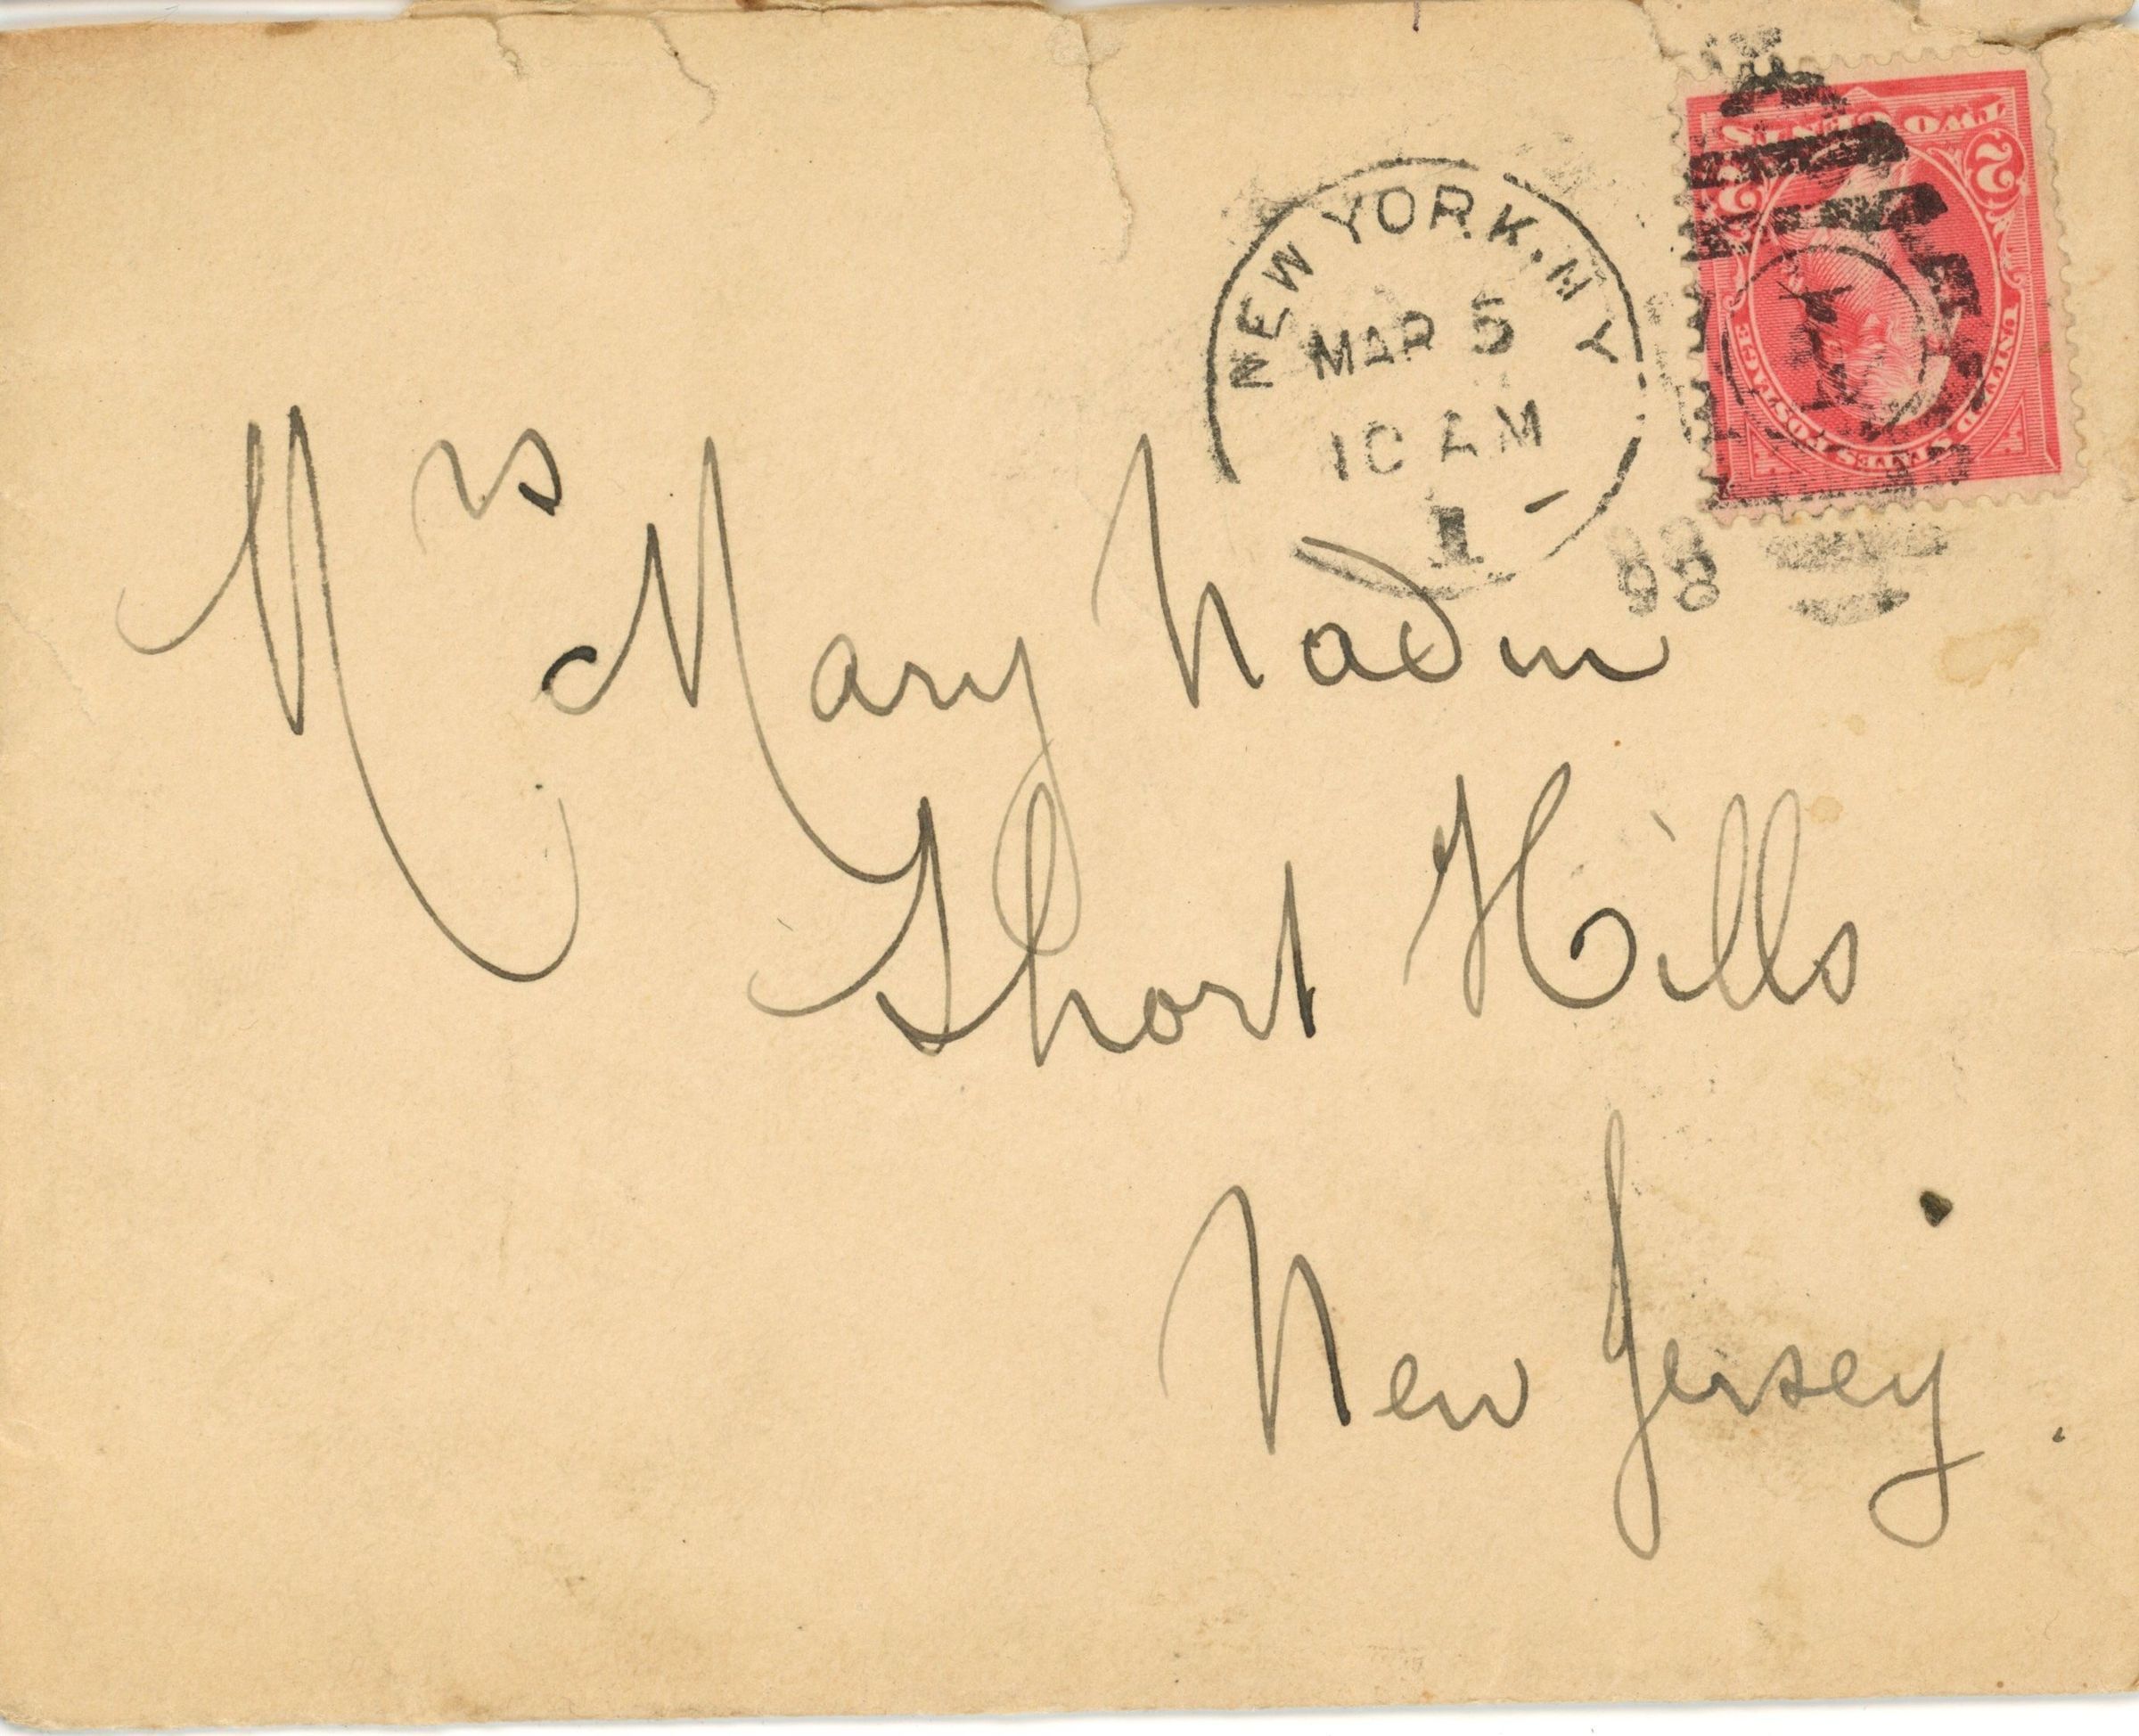 NEW YORK, N.Y.
MAR 5
10 AM
1
98
TWO CENTS
2 2
UNITED STATES POSTAGE
Mrs Mary
Short Hills
New Jersey.